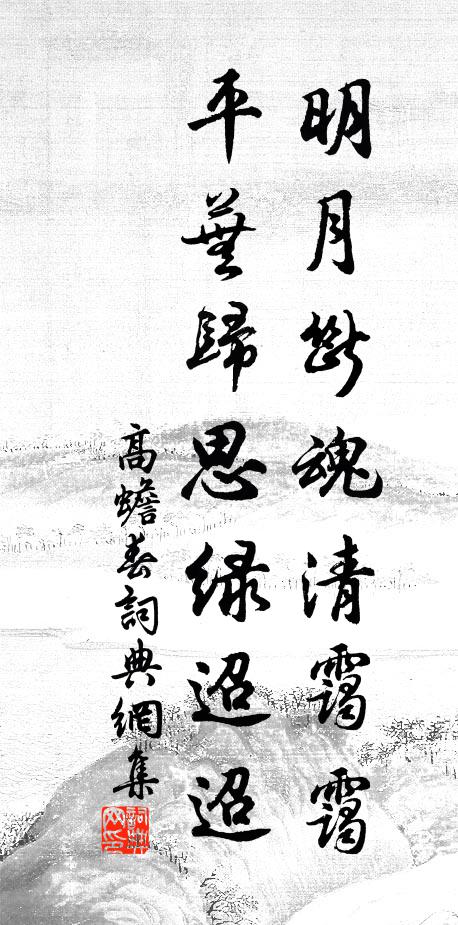 明月斷魂清靄靄
平蕪歸思綠迢迢
高蟾春詞典網集